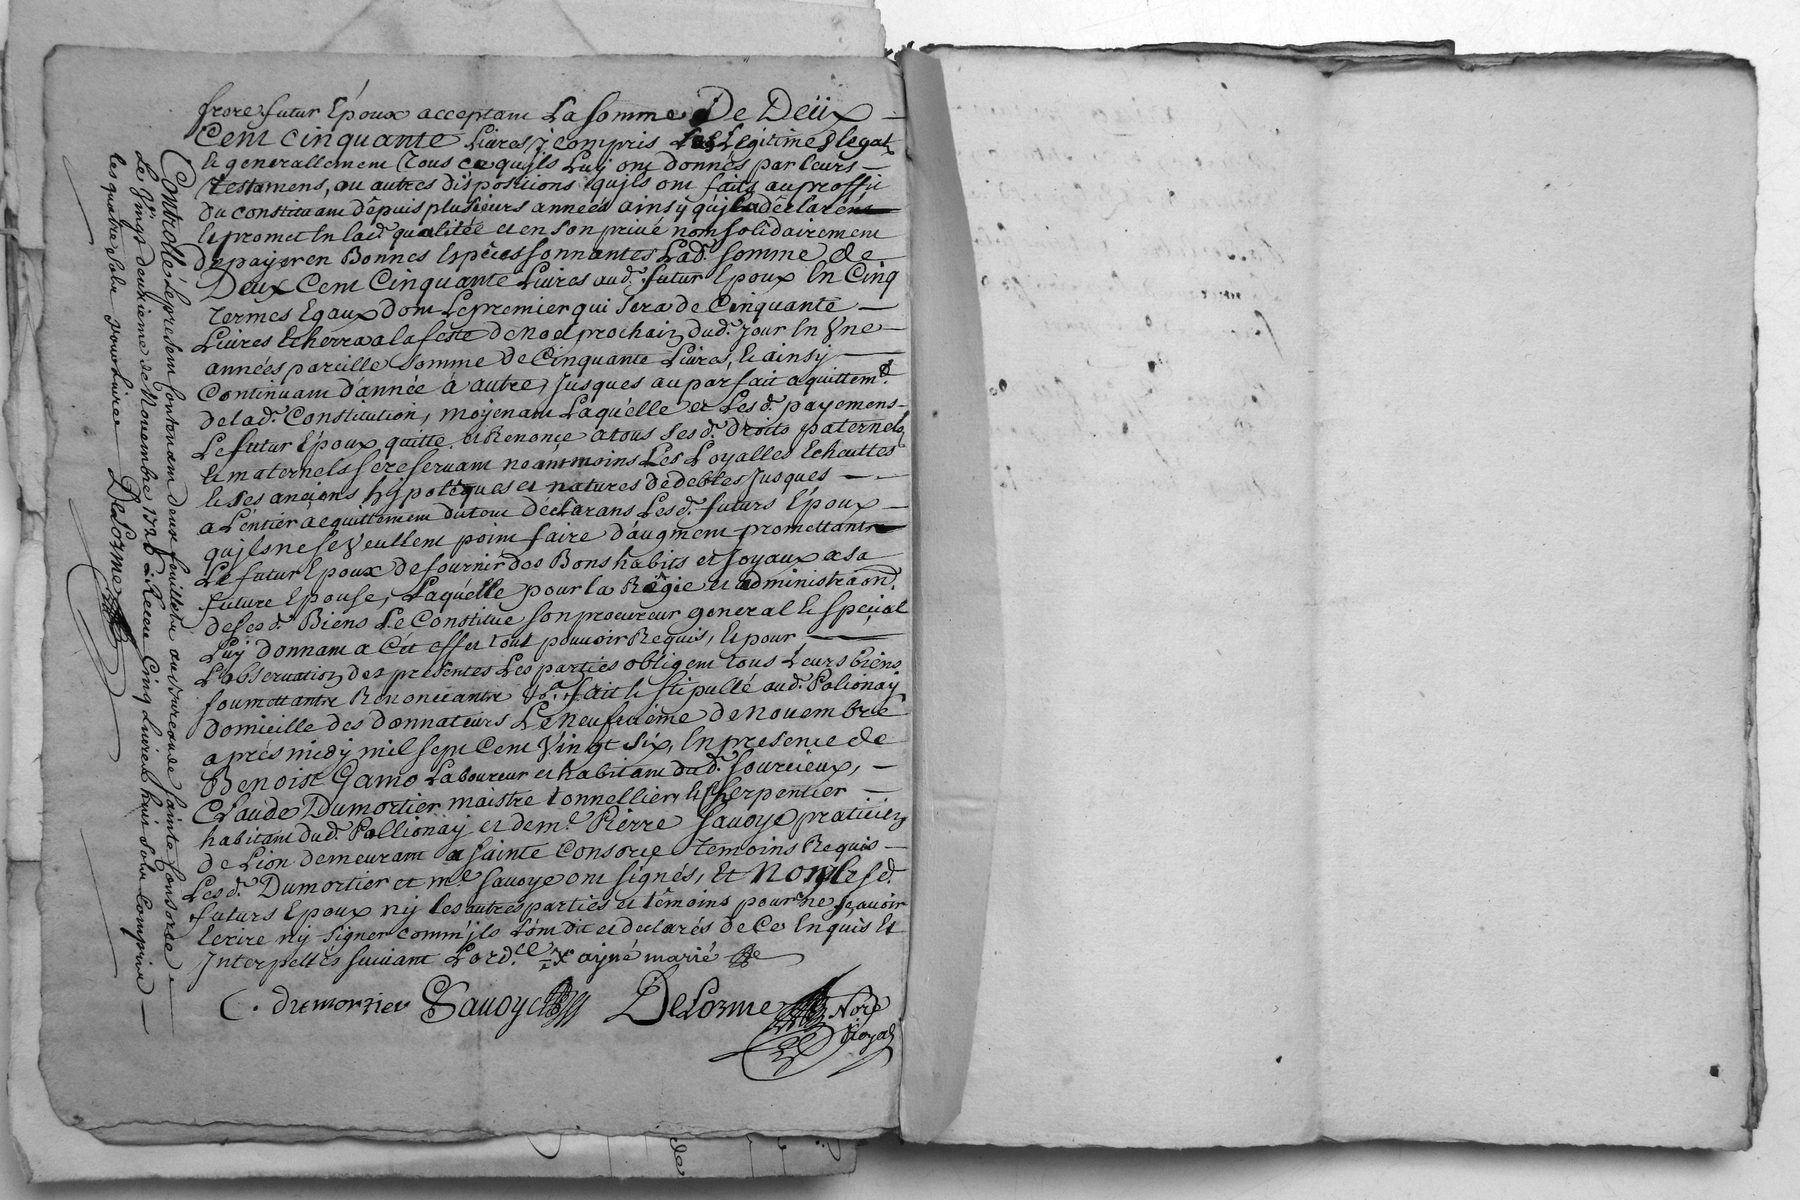 frere futur Epoux acceptant La somme De Deüx
Cent cinquante Livres y compris Les Legitime & legat
& generallement Tous ce qu'jls Luy ont donnés par leurs
testamens, ou autres dispositions qu'jls ont faits au proffit
du constituant dêpuis plusieurs années ainsy qu'jls
& promet En lad. qualitée et en son privé nom solidairement
de payer en Bonnes Espêces sonnantes Lad. somme de
Deux Cent Cinquante Livres aud. futur Epoux En Cinq
Termes Egaux dont Le premier qui sera de Cinquante
Livres Echerra a la feste de Noel prochain dud. jour En Une
années pareille somme de Cinquante Livres, & ainsy
Continuant d'année â autre, jusques au parfait aquittemt.
de lad. Constitution, moyenant Laquelle et Les d. payemens
Le futur Epoux quitte et Renonce a tous ses d. droits paternels
& maternels se reservant neantmoins Les Loyalles Echeuttes
& ses anciens hipotêques et natures de debtes jusques
a L'entier acquittement du tout declarans Les d. futurs Epoux
qu'jls ne se Veullent point faire d'augment promettant
Le futur Epoux de fournir des Bons habits et joyaux a sa
future Epouse, Laquelle pour la Regie et administraon.
de ses d. Biens Le Constitue son procureur general & speçial
Luy donnant a Cet effet tout pouvoir Requis, & pour
L'observation des presentes Les parties obligent tous Leurs biens
soumettantz Renonceantz &a. fait & stipullé aud. Polionay
domicille des donnateurs Le Neufvieme de Novembre
aprés midy mil sept Cent Vingt six, En presence de
Benoist Gamo Laboureur et habitant dud. Sourcieux,
Claude Dumortier maistre tonnellier & Cherpentier
habitant dud. Pollionay et de me. Pierre Savoye praticien
de Lion demeurant a Sainte Consorce temoins Requis
Les d. Dumortier et me. Savoye ont signés, Et Non Les d.
futurs Epoux ny les autres parties et têmoins pour ne sçavoir
Ecrire ny signer comm'jls L'ont dit et declarés de Ce Enquis Et
Interpellés suivant L'ord.ce ayné marié
C. dumortier Savoye DeLorme Nore
Royal
Controllé Le present Contenant deux feuillets au Bureau de Sainte Consorce
Le Vingt deuxieme de Novembre 1726 Receu Cinq Livres huit sols Compris
les quatre sols pour Livre DeLorme